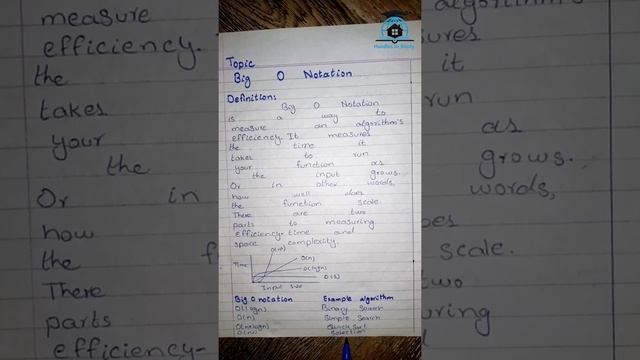 Hurdles in Study
Topic
Big O Notation
Definition:
Big O Notation
is a way to
measure an algorithm's
efficiency. It measures
the time it
takes to run
your function as
the input grows.
Or in other words,
how well does
the function scale.
There are two
parts to measuring
efficiency- time and
space complexity.
O(n)
O(logn)
Time
Input size
Big O notation Example algorithm
O(logn) Binary Search
O(n) Simple Search
O(n*logn) Quick Sort
Selection
measure
efficiency.
the
takes
your
the
Or in
how
the
There
parts
efficiency-
algorithm's
it
run
as
grows.
words,
scale.
two